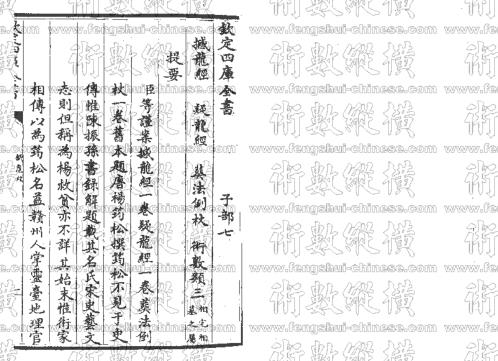 欽定四庫全書
子部七
撼龍經 疑龍經 葬法倒杖 術數類三 相宅相墓之屬
提要
臣等謹案撼龍經一卷疑龍經一卷葬法倒
杖一卷舊本題唐楊筠松撰筠松不見于史
傳惟陳振孫書録解題載其名氏宋史藝文
志則但稱為楊救貧亦不詳其始末惟術家
相傳以為筠松名益贛州人掌靈臺地理官
術數縱橫
www.fengshui-chinese.com